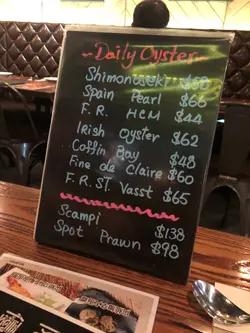 Daily Oyster
Shimonoseki $68
Spain Pearl $66
F.R. HCM $44
Irish Oyster $62
Coffin Bay $48
Fine de Claire $60
F.R. ST. Vasst $65
Scampi $138
Spot Prawn $98